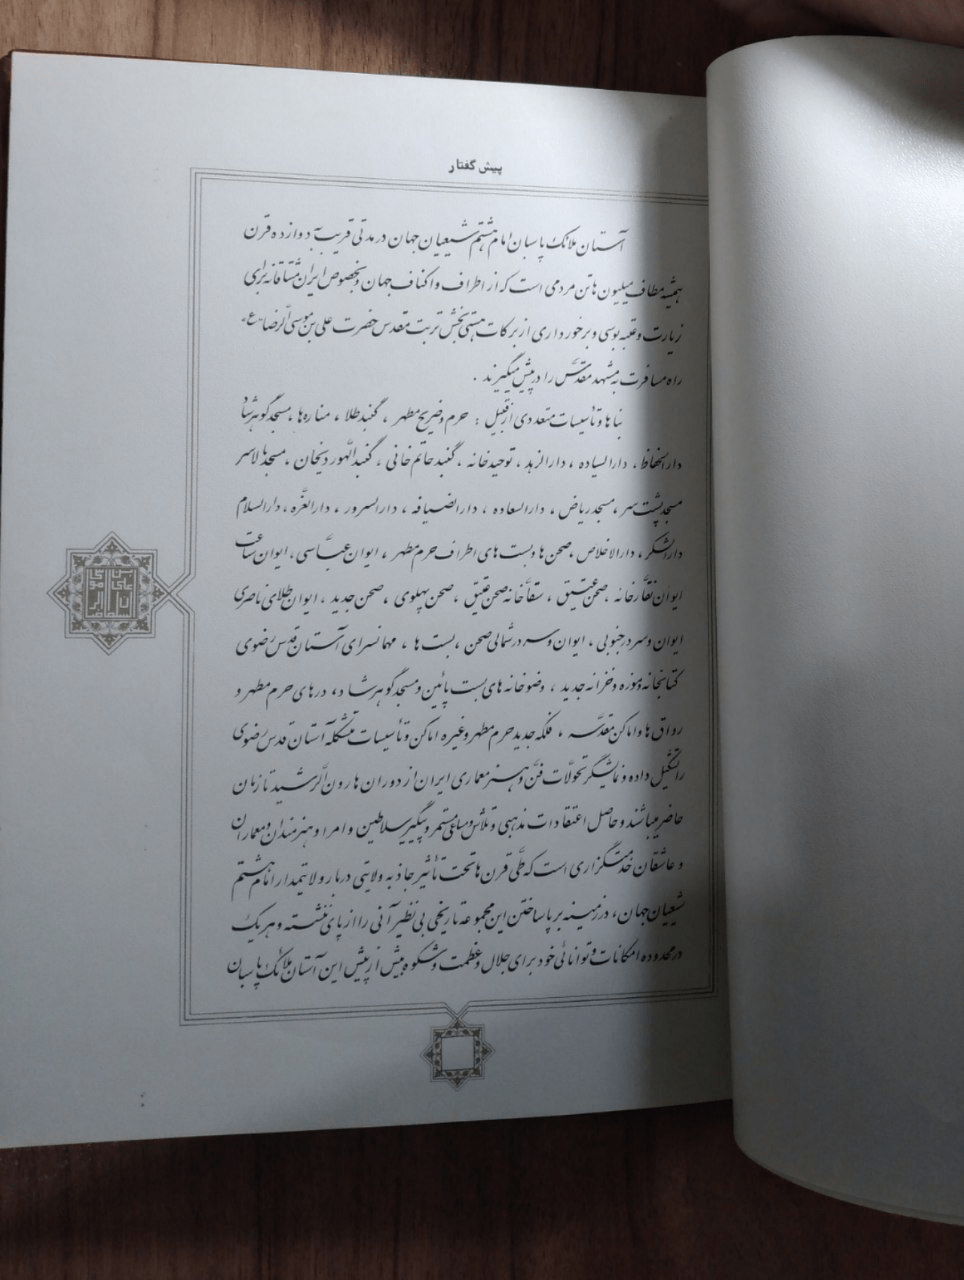 پیش گفتار
آستان ملائک پاسبان امام هشتم شیعیان جهان در مدتی قریب به دوازده قرن
همیشه مطاف میلیون ها تن مردمی است که از اطراف و اکناف جهان و بخصوص ایران مشتاقانه برای
زیارت و عتبه بوسی و برخورداری از برکات هستی بخش تربت مقدس حضرت علی بن موسی الرضا «ع»
راه مسافرت به مشهد مقدس را در پیش میگیرند .
بناها و تأسیسات متعددی از قبیل : حرم و ضریح مطهر ، گنبد طلا ، مناره ها ، مسجد گوهرشاد
دارالحفاظ ، دارالسیاده ، دارالزهد ، توحیدخانه ، گنبد حاتم خانی ، گنبد اللهوردیخان ، مسجد بالاسر
مسجد پشت سر ، مسجد ریاض ، دارالسعاده ، دارالضیافه ، دارالسرور ، دارالعزّه ، دارالسلام
دارالشکر ، دارالاخلاص ، صحن ها و بست های اطراف حرم مطهر ، ایوان عبّاسی ، ایوان ساعت
ایوان نقّاره خانه ، صحن عتیق ، سقّاخانه صحن عتیق ، صحن پهلوی ، صحن جدید ، ایوان طلای ناصری
ایوان و سردر جنوبی ، ایوان و سردر شمالی صحن ، بست ها ، مهمانسرای آستان قدس رضوی
کتابخانه و موزه و خزانه جدید ، وضوخانه های بست پائین و مسجد گوهرشاد ، درهای حرم مطهر و
رواق ها و اماکن مقدسه ، فلکه جدید حرم مطهر و غیره اماکن و تأسیسات متشکله آستان قدس رضوی
را تشکیل داده و نمایشگر تحوّلات فنّ و هنر معماری ایران از دوران هارون الرّشید تا زمان
حاضر میباشند و حاصل اعتقادات مذهبی و تلاش و مساعی مستمر و پیگیر سلاطین و امرا و هنرمندان و معماران
و عاشقان خدمتگزاری است که طّی قرن ها تحت تأثیر جاذبه ولایتی دربار ولایتمدار امام هشتم
شیعیان جهان ، در زمینه برپا ساختن این مجموعه تاریخی بی نظیر آنی را از پای ننشسته و هر یک
در محدوده امکانات و توانائی خود برای جلال و عظمت و شکوه بیش از پیش این آستان ملائک پاسبان